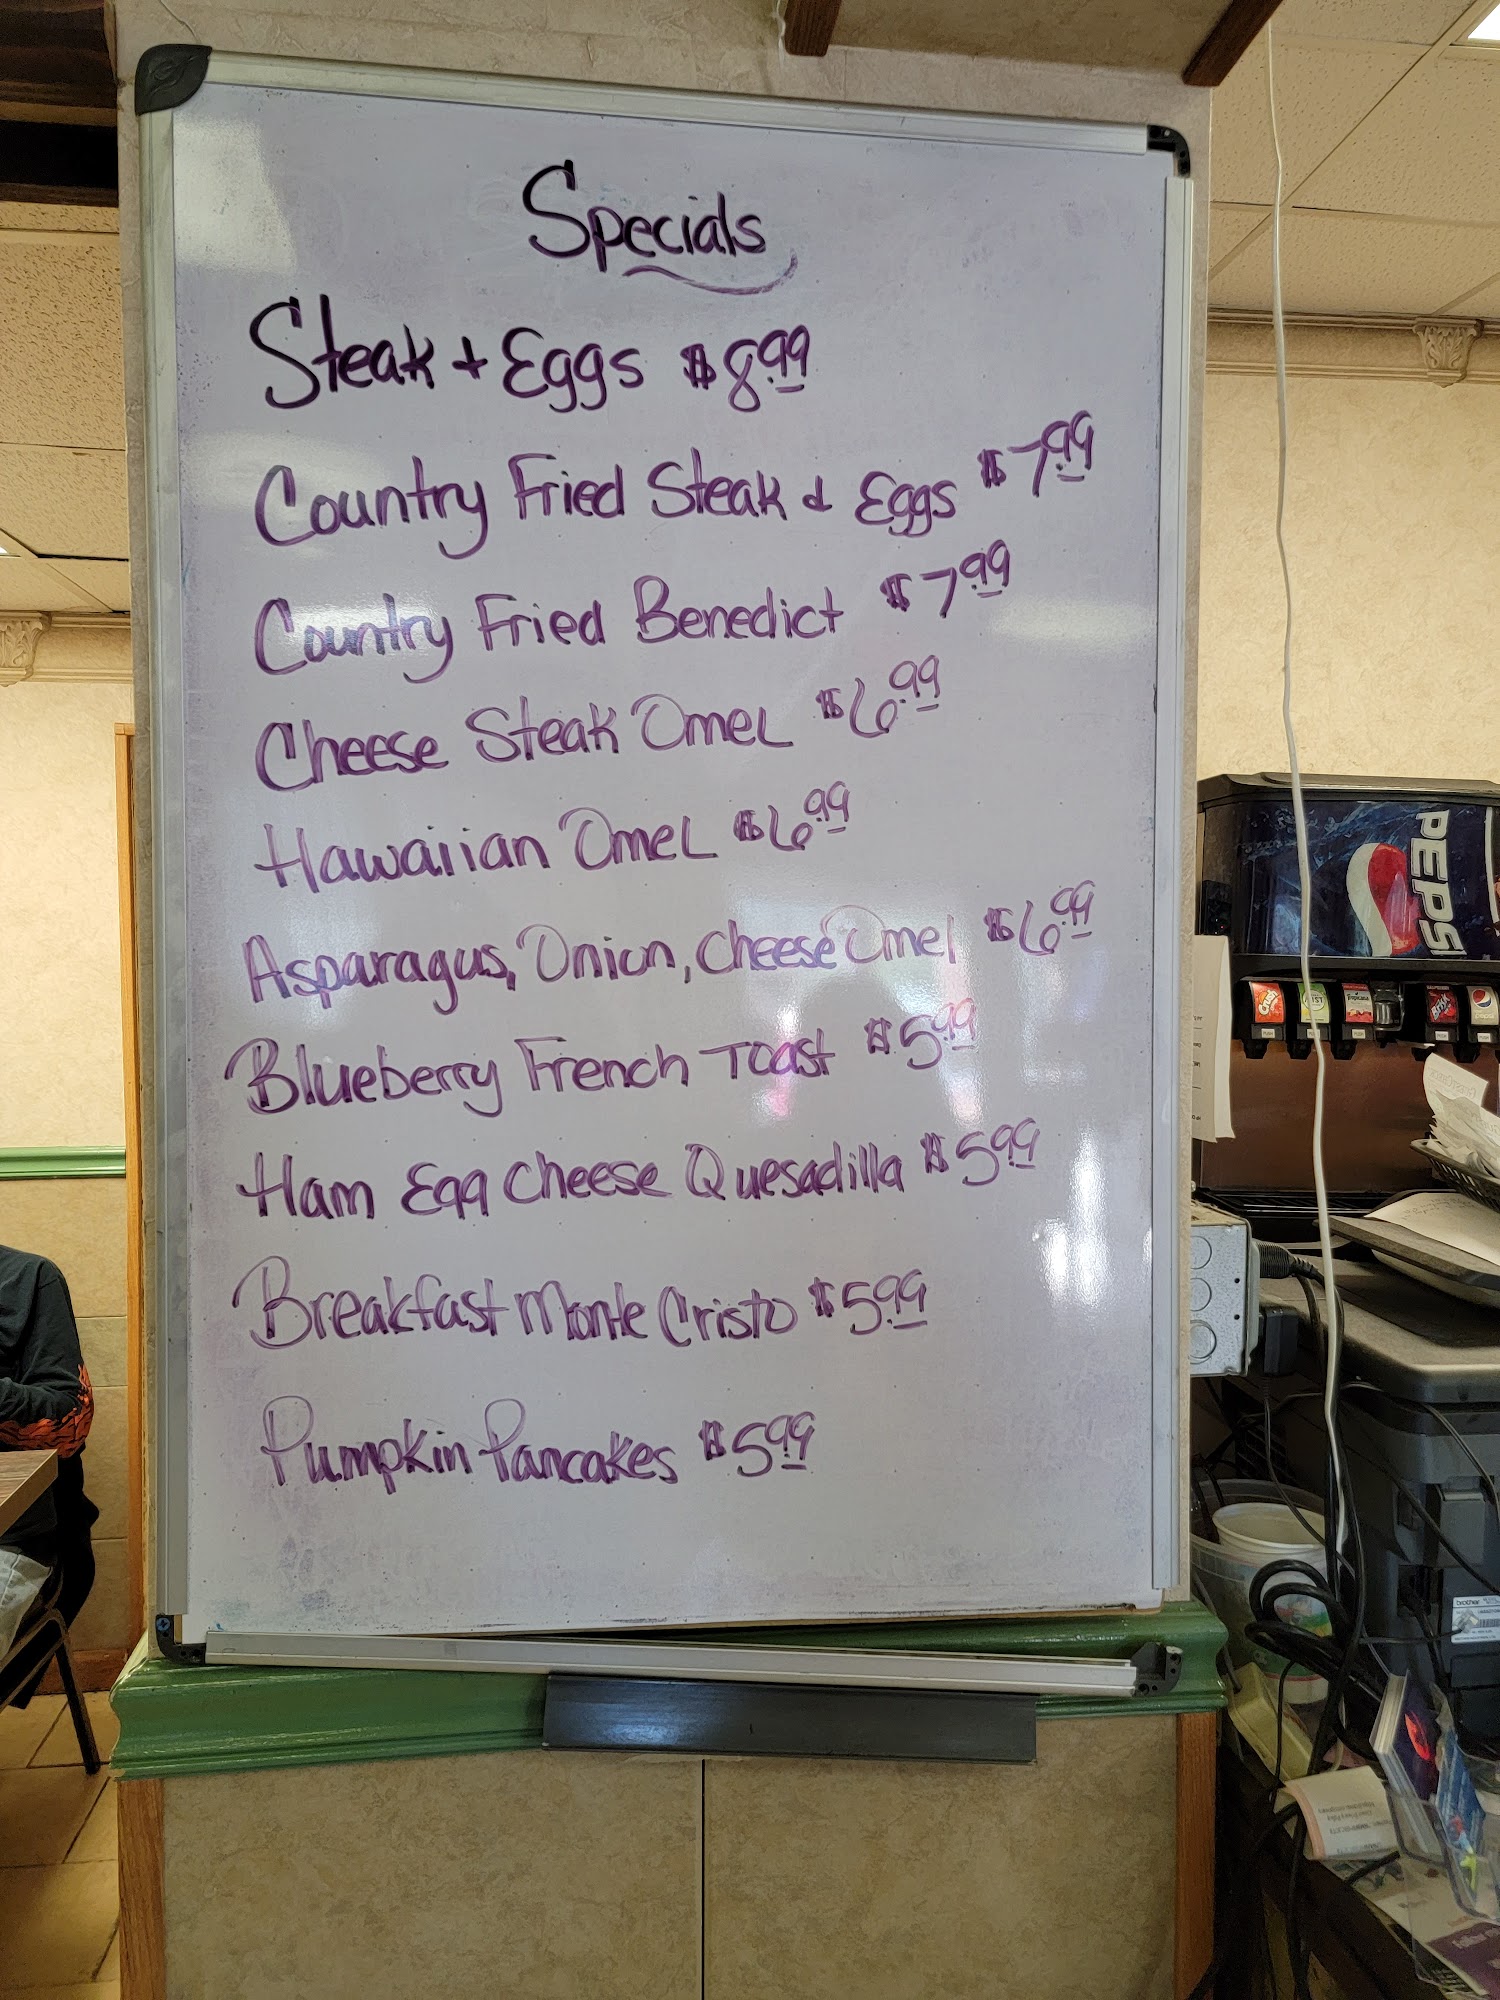 Specials
Steak + Eggs $8.99
Country Fried Steak & Eggs $7.99
Country Fried Benedict $7.99
Cheese Steak Omel $6.99
Hawaiian Omel $6.99
Asparagus, Onion, Cheese Omel $6.99
Blueberry French Toast $5.99
Ham Egg Cheese Quesadilla $5.99
Breakfast Monte Cristo $5.99
Pumpkin Pancakes $5.99
PEPSI
Crush
Tropicana
Brisk
pepsi
brother